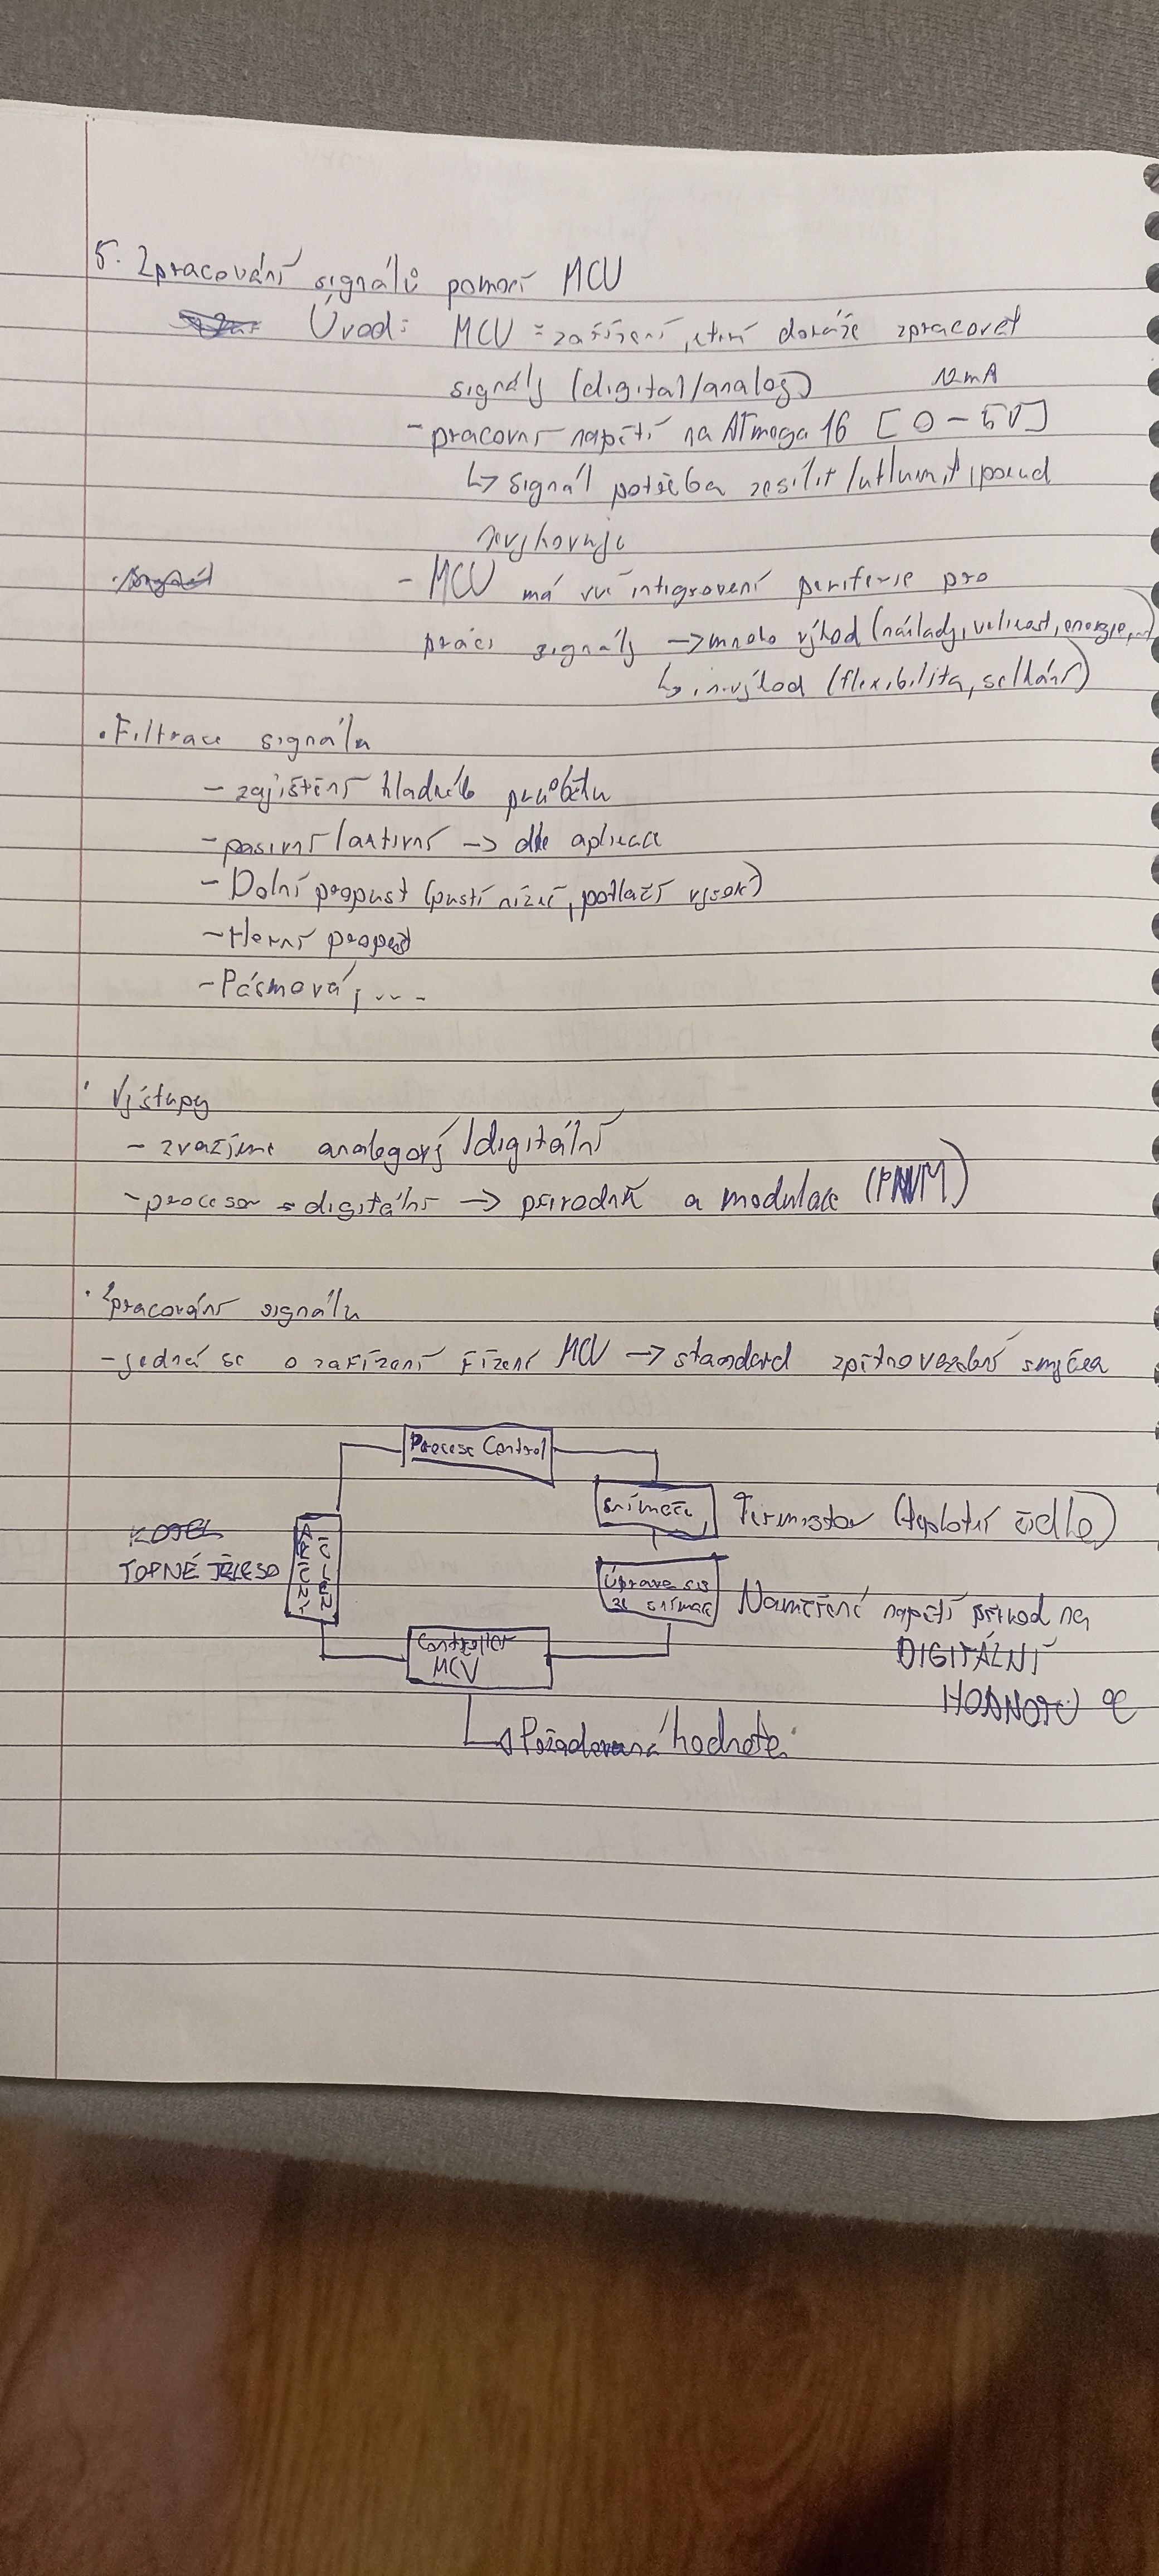 5. Zpracování signálů pomocí MCU
Úvod: MCU = zařízení, které dokáže zpracovat
signály (digital/analog)
12mA
- pracovní napětí na ATmega 16 [0-5V]
↳ signál potřeba zesílit/utlumit, pokud
nevyhovuje
- MCU má své integrovaní periferie pro
práci signály → mnoho výhod (náklady, velikost, energie, ...)
↳ i nevýhod (flexibilita, selhání)
• Filtrace signálu
- zajištění hladkého průběhu
- pasivní/aktivní → dle aplikace
- Dolní propust (pustí nízké, potlačí vysoké)
- Horní propust
- Pásmová, ....
• Výstupy
- zvažujeme analogový/digitální
- procesor = digitální → převodník a modulace (PWM)
• Zpracování signálu
- jedná se o zařízení řízení MCU → standard zpětnovazební smyčka
Process Control
snímače
Termistor (teplotní čidlo)
TOPNÉ TĚLESO
AKČNÍ ČLEN
Úprava sig
ze snímače
Naměřené napětí převod na
DIGITÁLNÍ
HODNOTU °C
Controller
MCU
Požadovaná hodnota